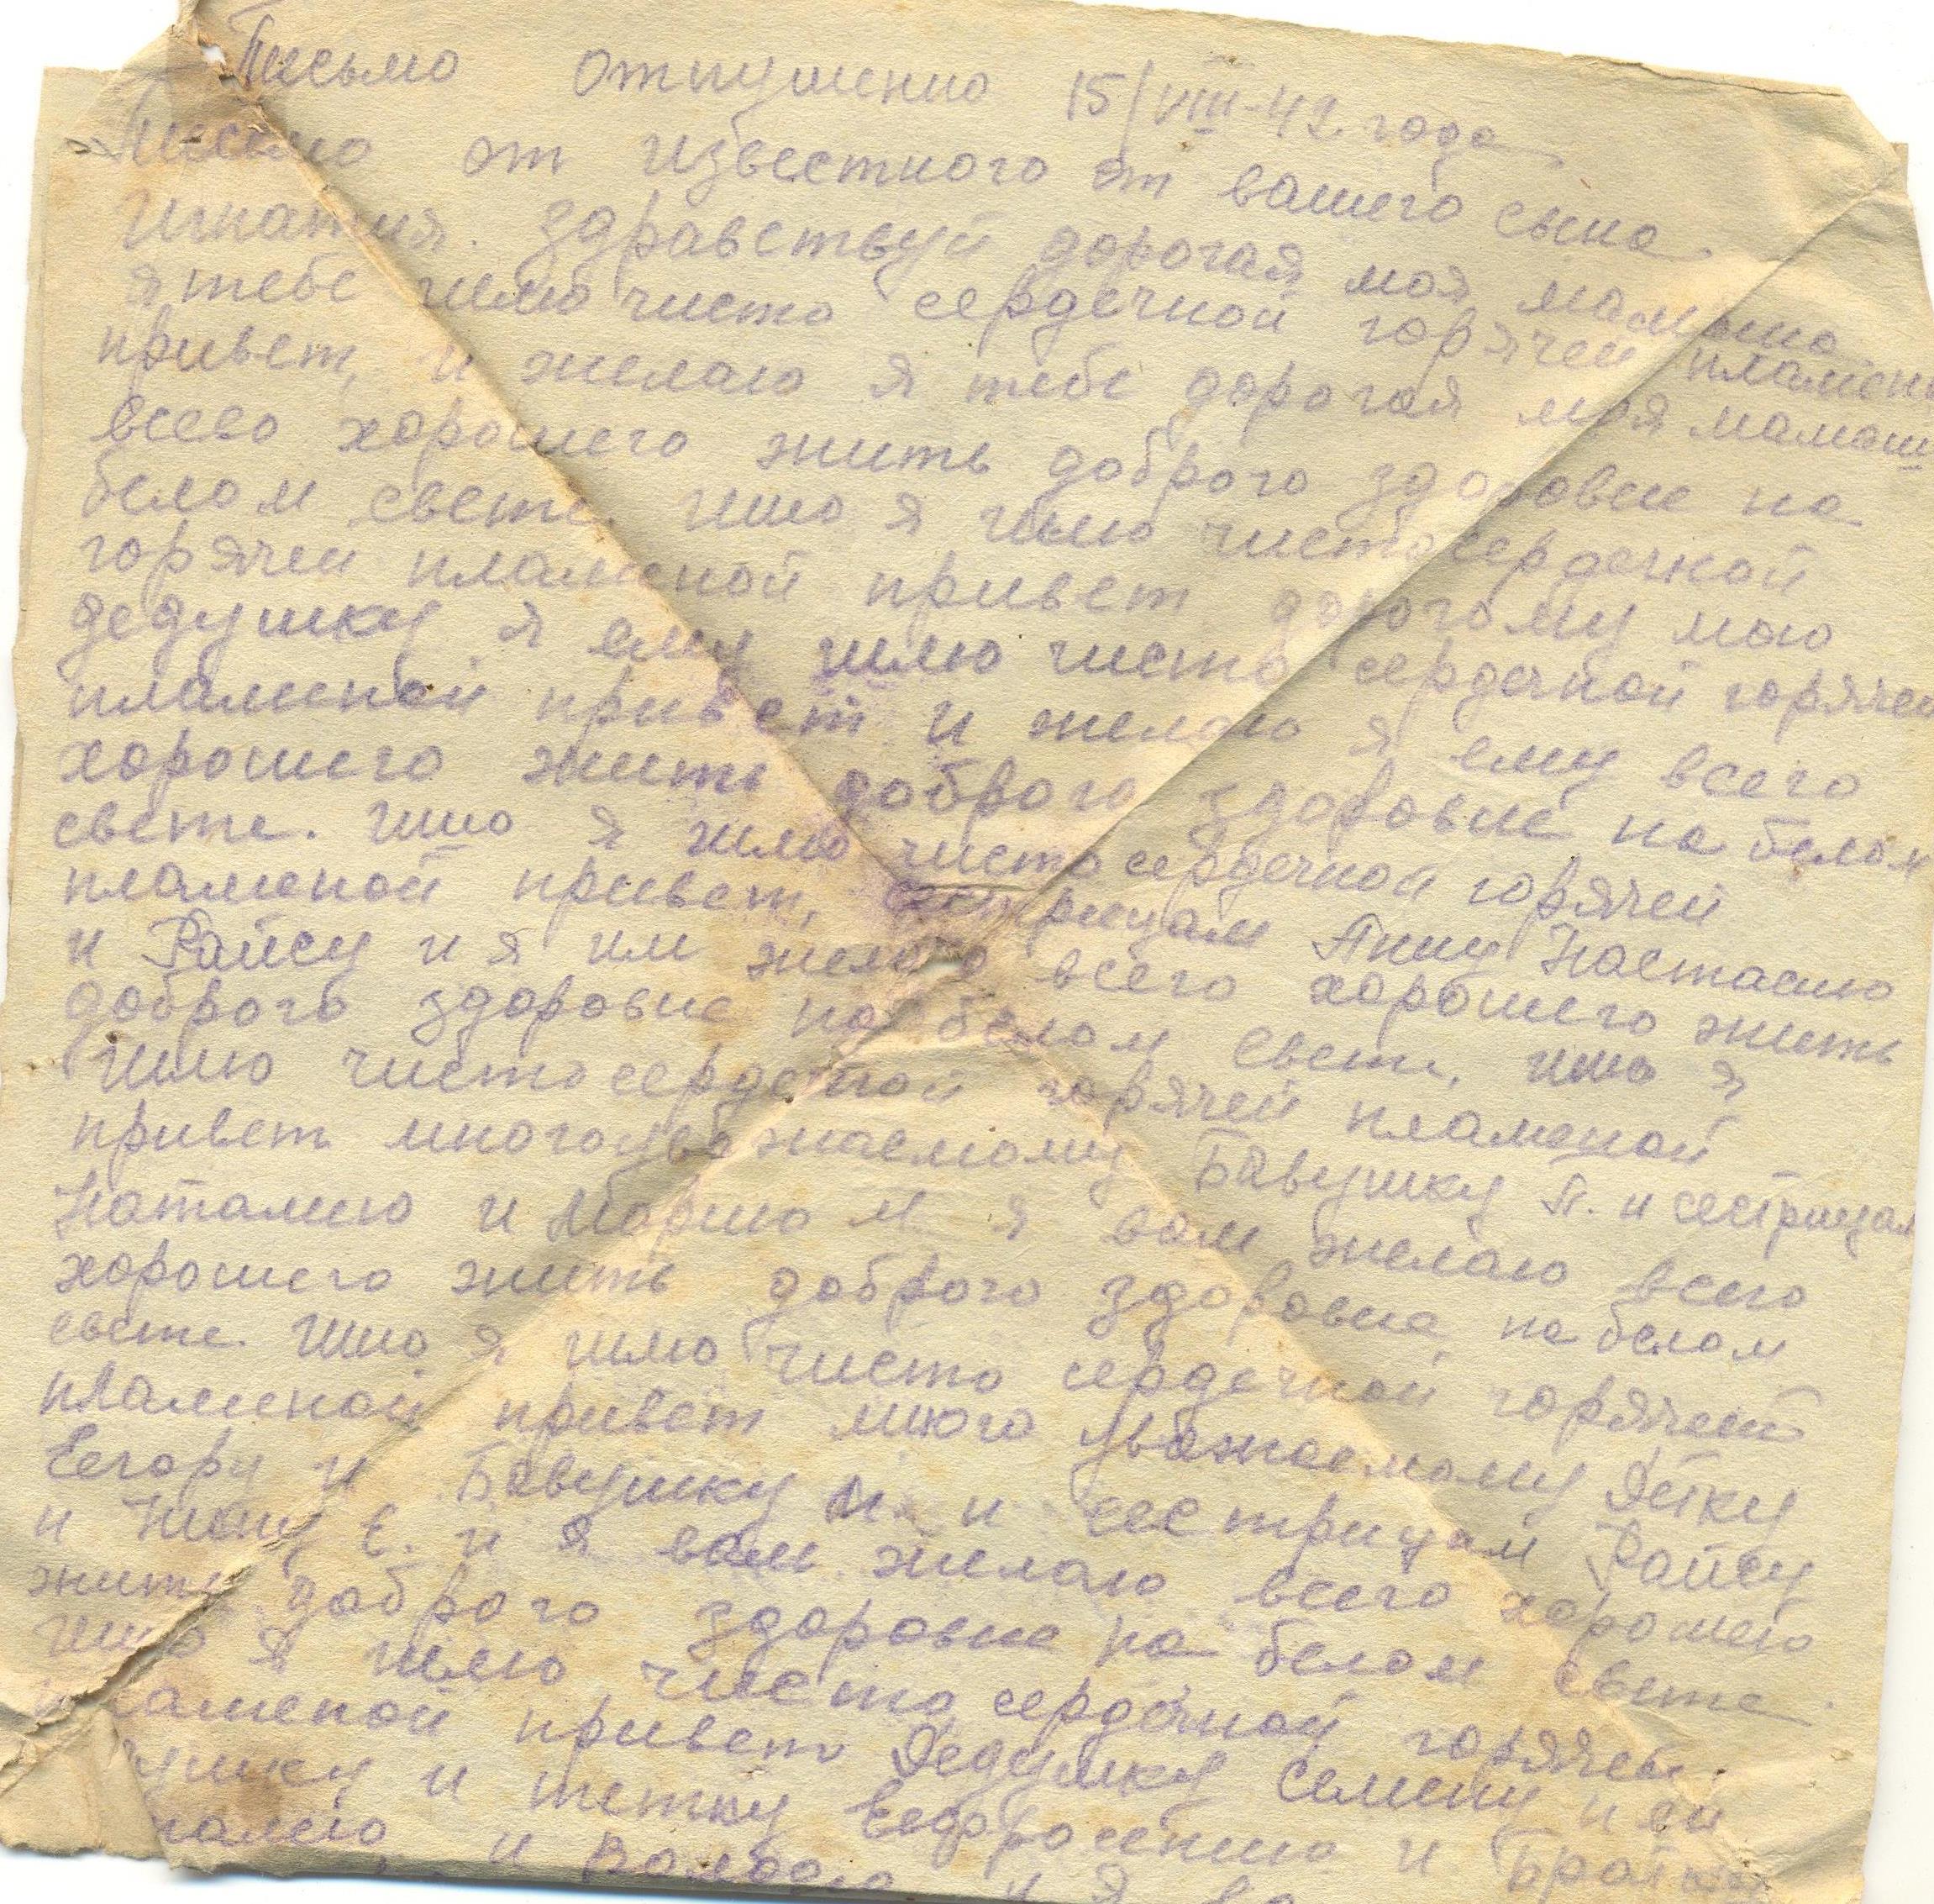 Письмо отпущенно 15/VIII-42 года
Письмо от известного от вашего сына
Игнатия. здравствуй дорогая моя мамаша
я тебе шлю чисто сердечной горячей пламены
привет, и желаю я тебе дорогая моя мамаш
всево хорошего жить доброго здоровие на
белом свете ишо я шлю чистосердечной
горячей пламеной привет дорогому мою
дедушку я ему шлю чисто сердечной горячей
пламеной привет и желаю я ему всего
хорошего жить доброго здоровие на белом
свете. ишо я шлю чисто сердечной горячей
пламеной привет, сестрицам Анну Настасию
и Райсу и я им желаю всего хорошего жить
доброго здоровие на белом свети, ишо я
шлю чистосердечной горячей пламеной
привет многоуважаемому Бавушку П. и сестрицам
Наталию и Марию М я вам желаю всего
хорошего жить доброго здоровие на белом
свете ишо я шлю чисто сердечной горячей
пламеной привет много уважаемому Дятку
Еегору и Бавушку М. и сестрицам Райсу
и Нину Е. и я вам желаю всего хорошего
жить доброго здоровие на белом свете
ишо я шлю чисто сердечной горячей
пламеной привет Дедушку Семену и ей
ушку и тетку Ефросению и Братка
талию и Володю и я ва